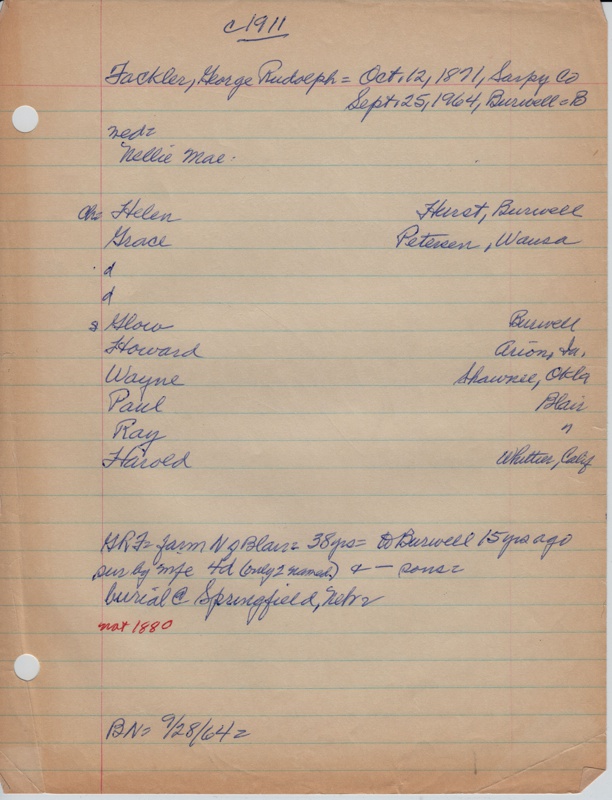 c1911
Fackler, George Rudolph = Oct. 12, 1871, Sarpy Co
Sept. 25, 1964, Burwell = B
Nellie Mae
ch= Helen Hurst, Burwell
Grace Petersen, Wausa
d
d
s Glow Burwell
Howard Arion, Ia.
Wayne Shawnee, Okla
Paul Blair
Ray "
Harold Whittier, Calif
GRF= farm N of Blair= 38yrs= to Burwell 15 yrs ago
sur by wife 4d (only 2 named) & — sons=
burial @ Springfield, Nebr=
not 1880
BN= 9/28/64=